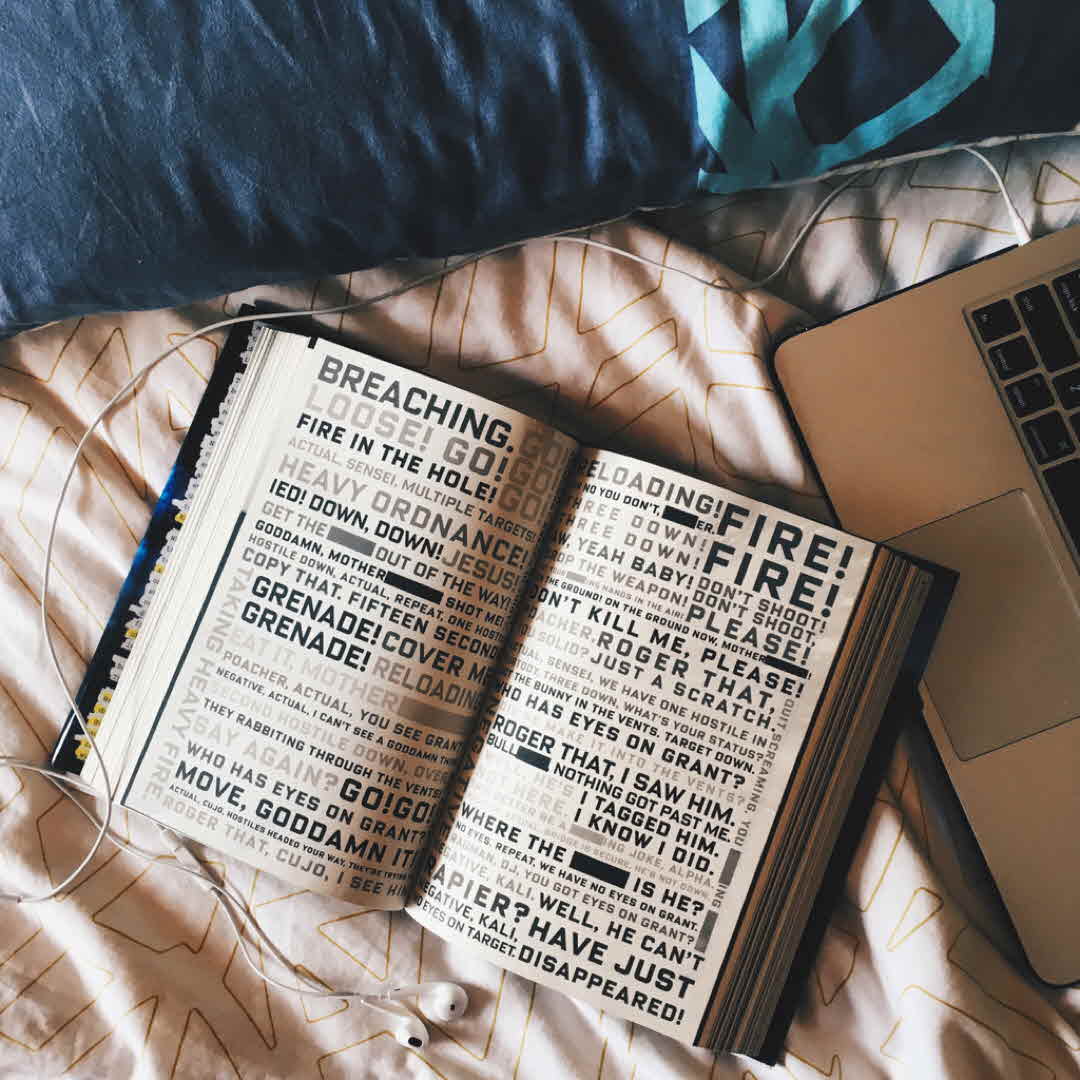 BREACHING.
LOOSE! GO! GO
FIRE IN THE HOLE! GO
ACTUAL, SENSEI, MULTIPLE TARGETS! GO!
HEAVY ORDNANCE!
IED! DOWN, DOWN! JESUS!
GET THE OUT OF THE WAY!
GODDAMN, MOTHER SHOT ME!
HOSTILE DOWN, ACTUAL, REPEAT, ONE HOSTILE
COPY THAT, FIFTEEN SECONDS
GRENADE! COVER ME
GRENADE! RELOADING
EAT IT, MOTHER
POACHER, ACTUAL, YOU SEE GRANT
NEGATIVE, ACTUAL, I CAN'T SEE A GODDAMN
SECOND HOSTILE DOWN, OVER
THEY RABBITING THROUGH THE VENTS!
SAY AGAIN? GO! GO!
WHO HAS EYES ON GRANT?
MOVE, GODDAMN IT
ACTUAL, CUJO, HOSTILES HEADED YOUR WAY, THEY'RE TRYING
ROGER THAT, CUJO, I SEE HIM
TAKING HEAVY FIRE
RELOADING! FIRE!
NO YOU DON'T, ER. FIRE!
THREE DOWN!
THREE DOWN!
YEAH BABY! DON'T SHOOT!
DROP THE WEAPON! DON'T SHOOT,
ING HANDS IN THE AIR! PLEASE!
THE GROUND! ON THE GROUND NOW, MOTHER !
DON'T KILL ME, PLEASE!
POACHER, ROGER THAT,
YOU SOLID? JUST A SCRATCH,
ACTUAL, SENSEI, WE HAVE ONE HOSTILE IN
CUSTODY, THREE DOWN, WHAT'S YOUR STATUS?
THE BUNNY IN THE VENTS. TARGET DOWN.
WHO HAS EYES ON GRANT?
MAKE IT INTO THE VENTS?
ROGER THAT, I SAW HIM.
BULL NOTHING GOT PAST ME.
HE'S I TAGGED HIM.
HERE. I KNOW I DID.
BETTER BE A ING JOKE, ALPHA.
BRIDGE IS SECURE. HE'S NOT DOWN
WHERE THE IS HE?
NO EYES, REPEAT, WE HAVE NO EYES ON GRANT.
DJ, YOU GOT EYES ON GRANT?
NEGATIVE, KALI, WELL, HE CAN'T
NAPIER? HAVE JUST
NEGATIVE, KALI, DISAPPEARED!
NO EYES ON TARGET.
QUIT SCREAMING, YOU ING